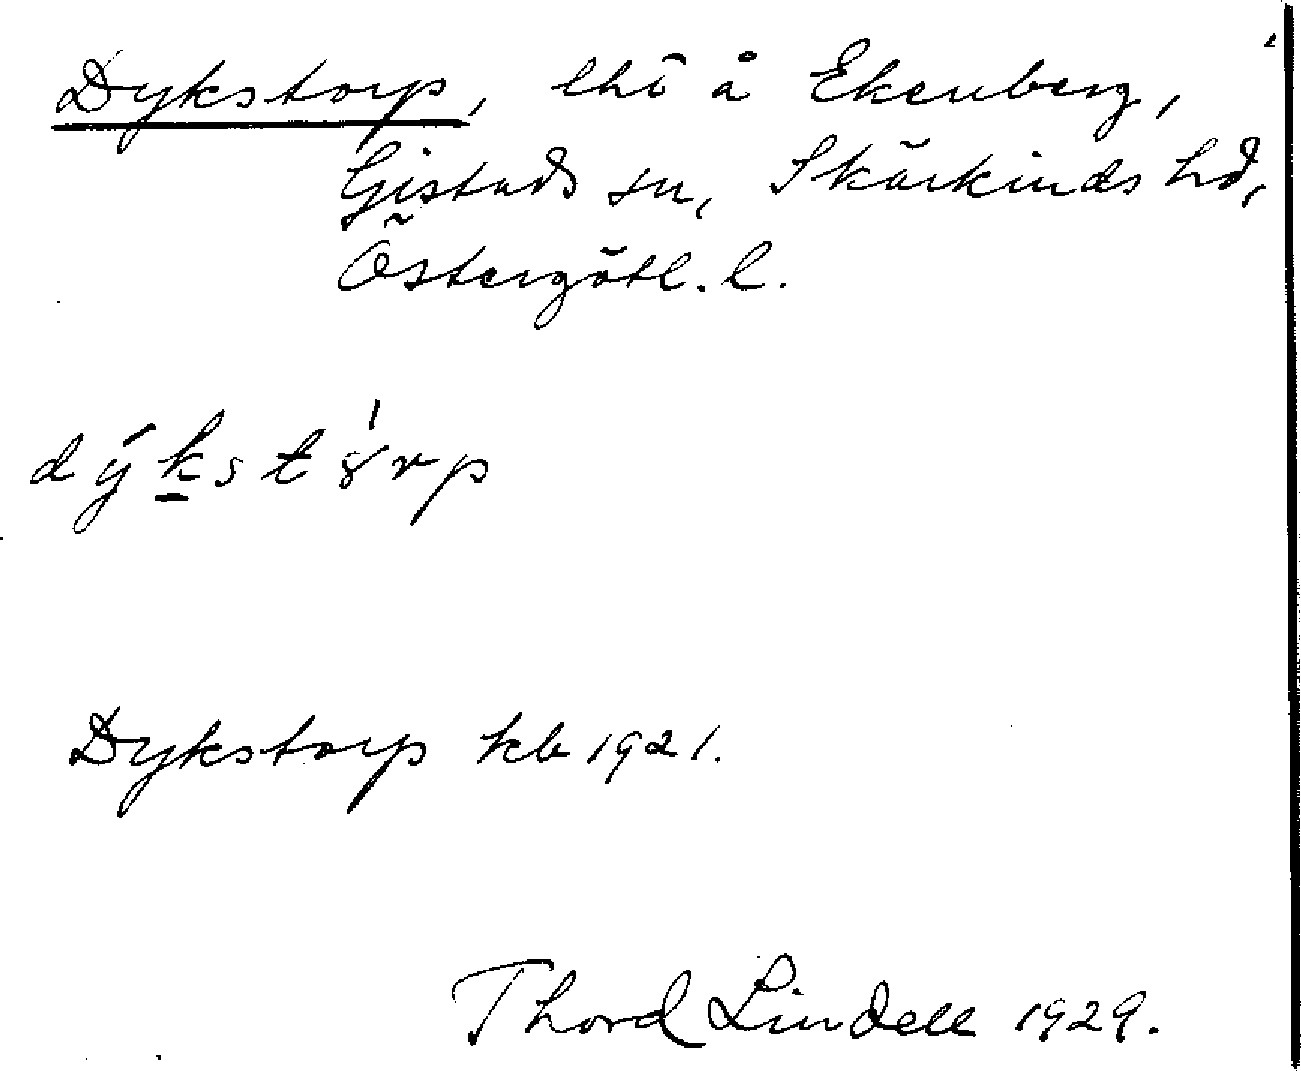 Dykstorp, lht å Ekenberg,
Gistads sn, Skärkinds hd,
Östergötl. l.
dýkstȣ̍rp
Dykstorp kb 1921.
Thord Lindell 1929.